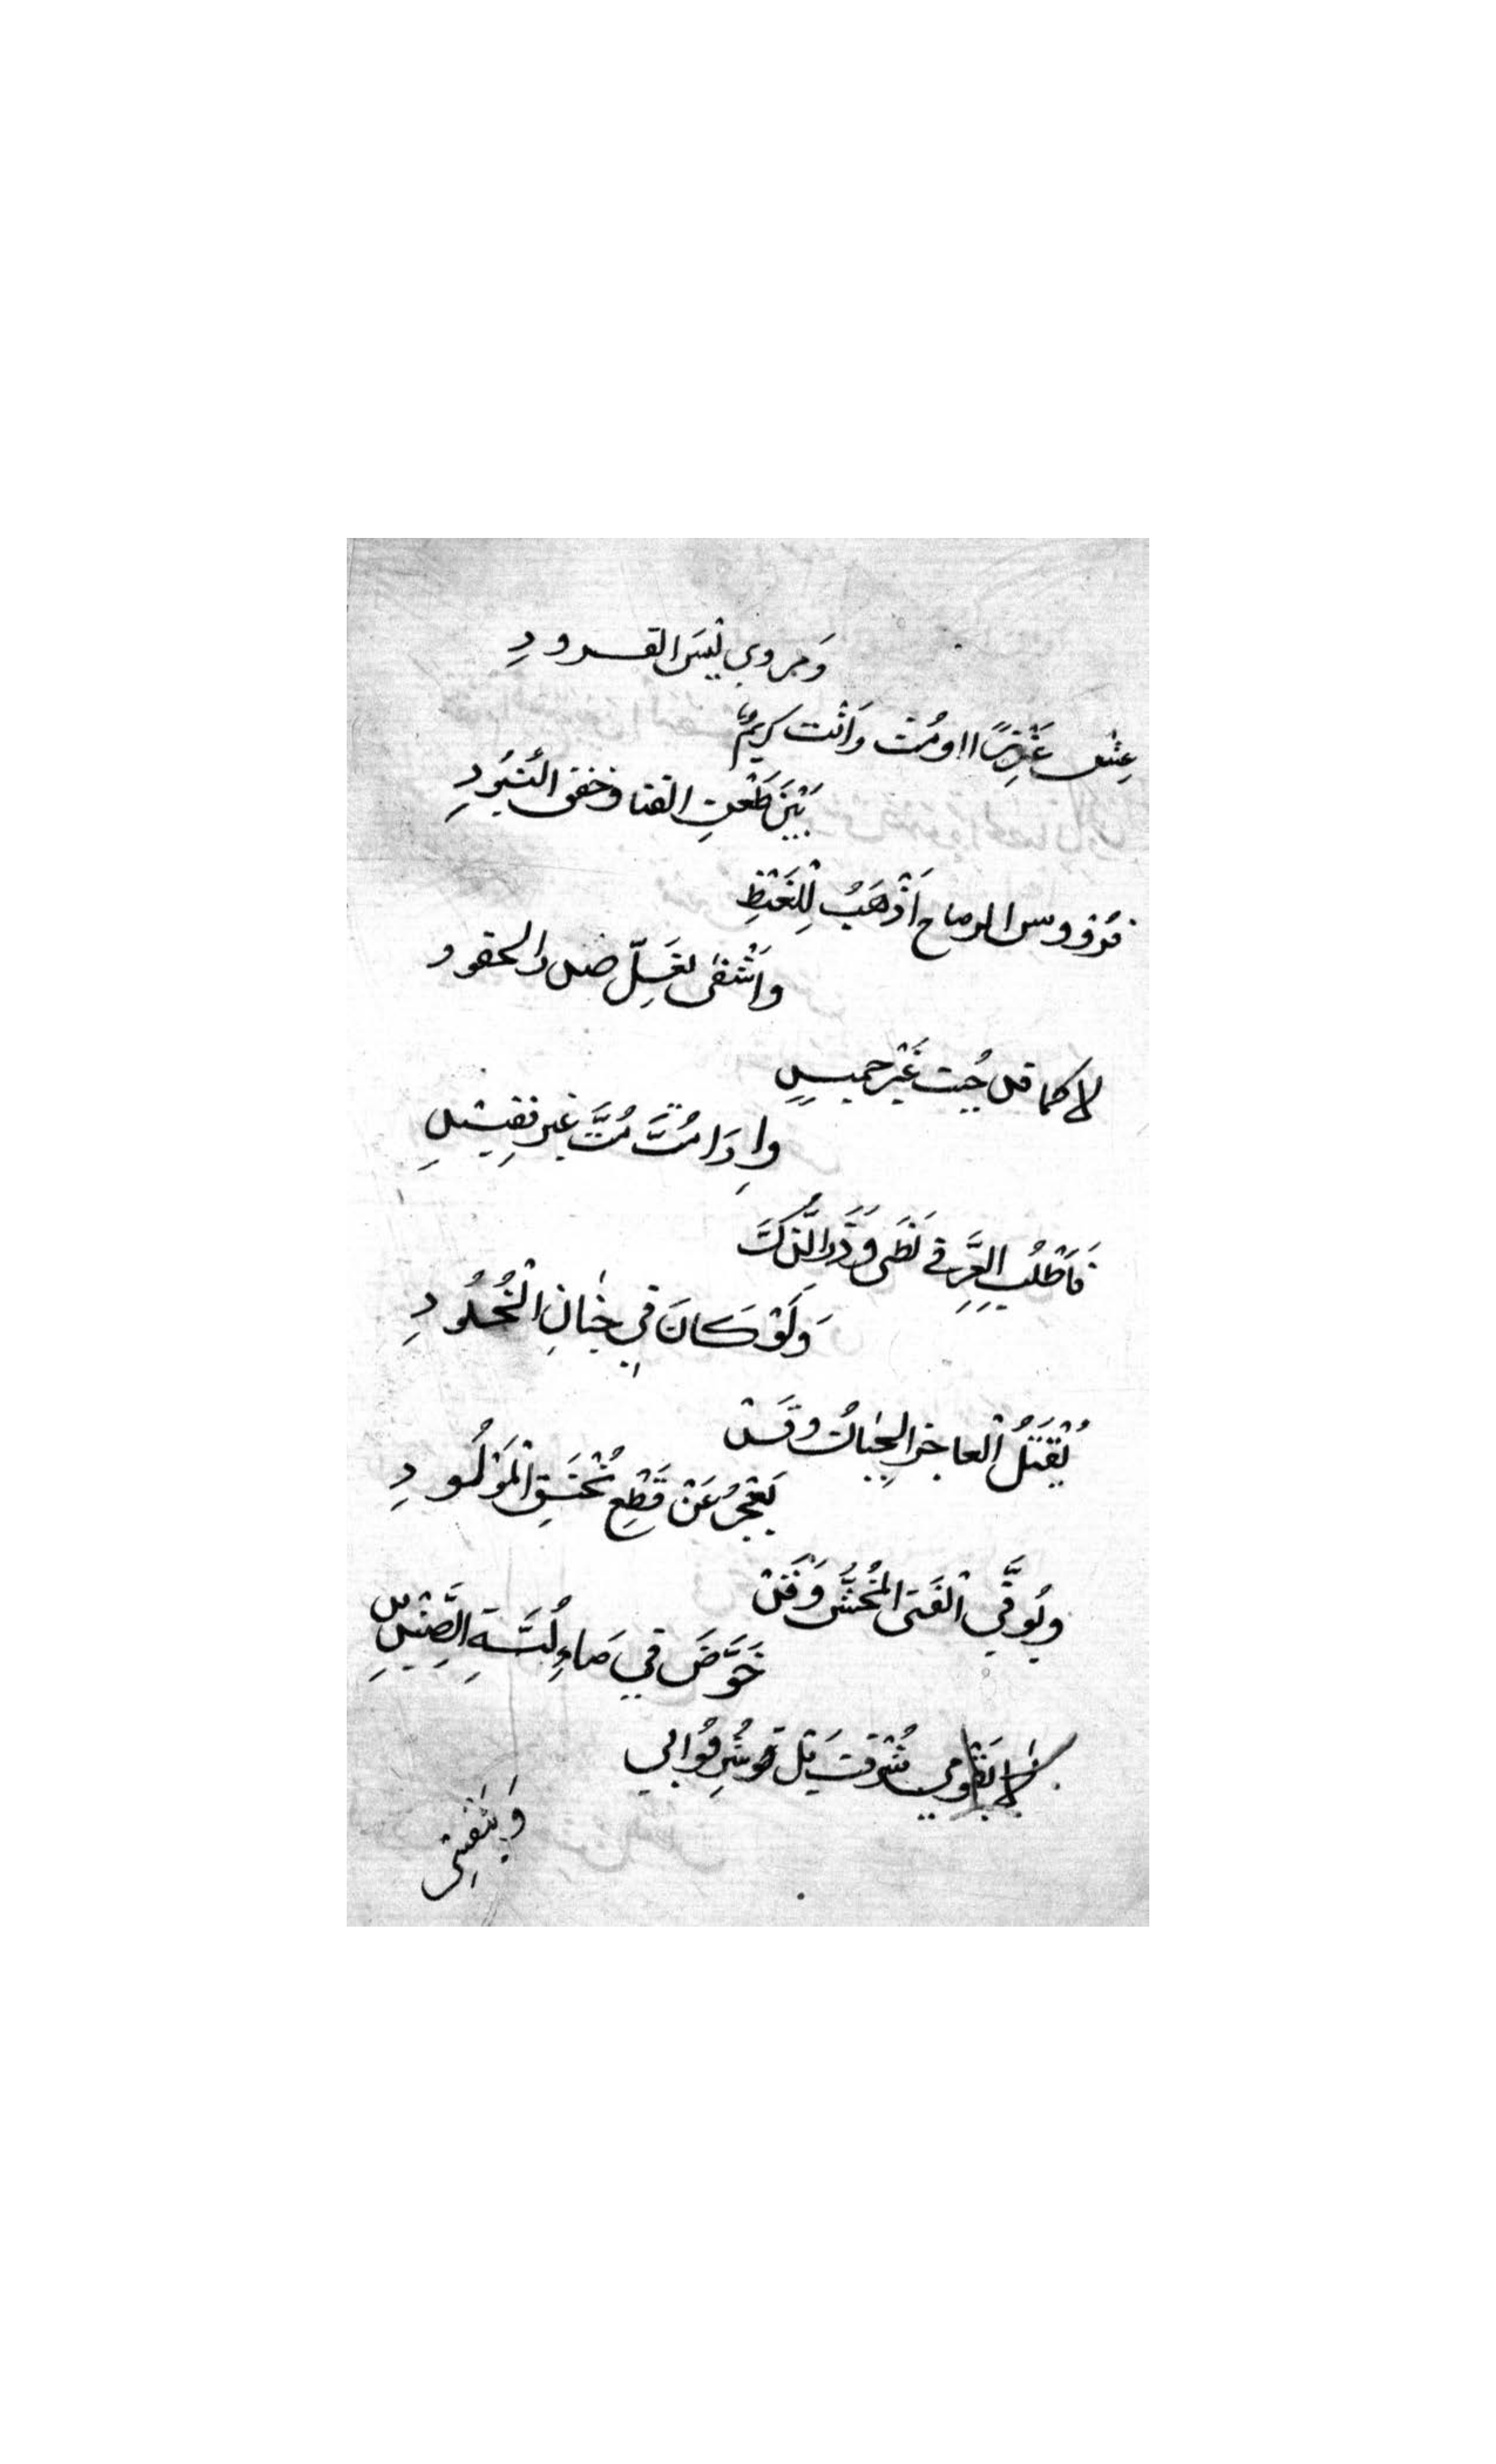 وَمروي لبْسَ القرودِ
عِشْ عَزِيزًا او مُتْ وَانْت كرِيمٌ
بَيْنَ طَعْنِ القنا وخفق البُنُودِ
فرووس الرماح اَذْهَبُ لِلْغَيْظِ
واَشْفىٰ لغَلِّ صدر الحقود
لا كما قد حُيِيت غَيْر حميدٍ
واِذَا مُتَّ مُتَّ غير فقِيدِ
فَاَطْلُبِ العِزَّ في لَظَى وَذَرِ الذُّلَّ
وَلَوْ كَانَ فِي جِنَانِ الْخُلُودِ
يُقْتَلُ الْعاجز الجَبَانُ وقَدْ
يَعْجزُ عَنْ قَطْعِ بُخْنَقِ الْمَوْلُودِ
ويُوَقَّي الْفَتى المُخَشُّ وَقَدْ
خَوَّضَ فِي مَاءِ لَبَّةِ الصِّنْدِيدِ
لا بقَوْمِي شُرِّفْت بَلْ شُرِفُوا بِي
وَبِنَفْسِي